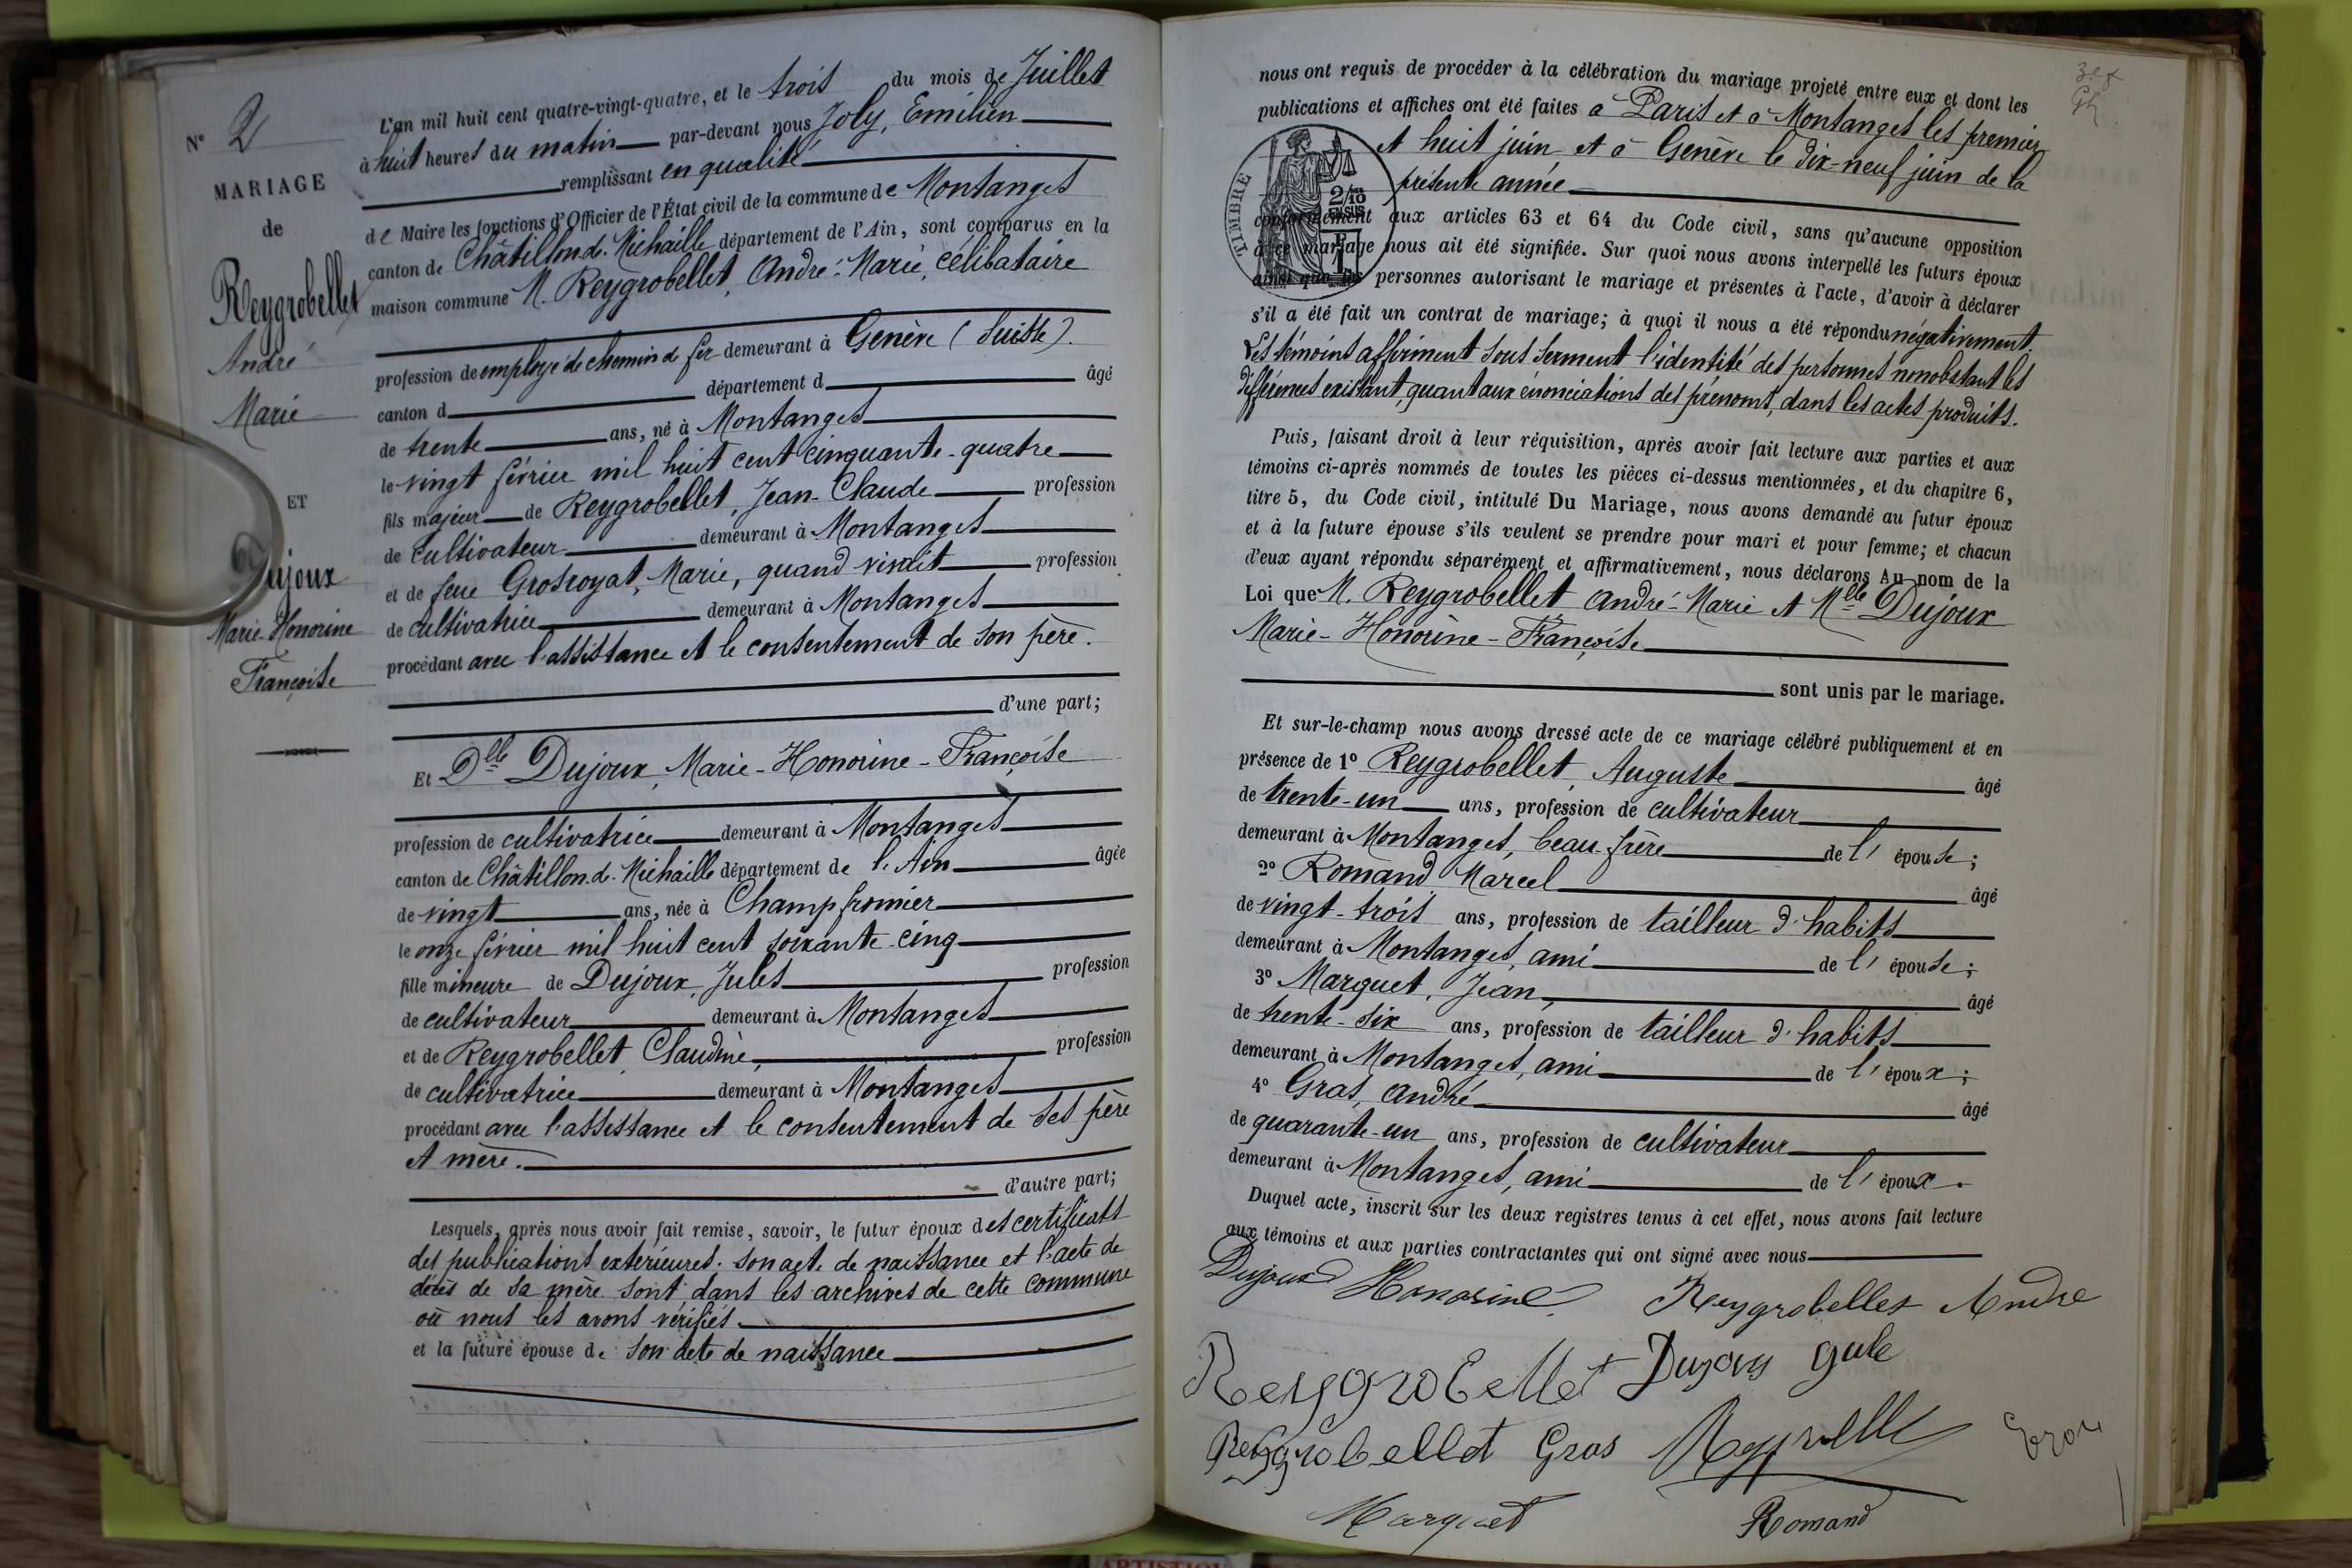 N° 2
MARIAGE
de
Reygrobellet
André
Marie
ET
Dujoux
Marie-Honorine
Françoise
L'an mil huit cent quatre-vingt-quatre, et le trois du mois de Juillet
à huit heures du matin par-devant nous Joly, Emilien
remplissant en qualité
de Maire les fonctions d'Officier de l'État civil de la commune de Montanges
canton de Châtillon-de-Michaille département de l'Ain, sont comparus en la
maison commune M. Reygrobellet, André-Marie, célibataire
profession de employé de chemin de fer demeurant à Genève (Suisse).
canton d département d âgé
de trente ans, né à Montanges
le vingt février mil huit cent cinquante-quatre
fils majeur de Reygrobellet, Jean-Claude profession
de cultivateur demeurant à Montanges
et de feue Grosroyat, Marie, quand vivait profession
de cultivatrice demeurant à Montanges
procédant avec l'assistance et le consentement de son père.
d'une part;
Et Dlle Dujoux, Marie-Honorine-Françoise
profession de cultivatrice demeurant à Montanges
canton de Châtillon-de-Michaille département de l'Ain âgée
de vingt ans, née à Champfromier
le onze février mil huit cent soixante-cinq
fille mineure de Dujoux, Jules profession
de cultivateur demeurant à Montanges
et de Reygrobellet, Claudine, profession
de cultivatrice demeurant à Montanges
procédant avec l'assistance et le consentement de ses père
et mère.
d'autre part;
Lesquels, après nous avoir fait remise, savoir, le futur époux des certificats
des publications extérieures. son acte de naissance et l'acte de
décès de sa mère sont dans les archives de cette commune
où nous les avons vérifiés.
et la future épouse de son acte de naissance
nous ont requis de procéder à la célébration du mariage projeté entre eux et dont les
publications et affiches ont été faites à Paris et à Montanges les premier
et huit juin et à Genève le dix-neuf juin de la
présente année
TIMBRE
2/10
EN SUS
conformément aux articles 63 et 64 du Code civil, sans qu'aucune opposition
à ce mariage nous ait été signifiée. Sur quoi nous avons interpellé les futurs époux
ainsi que les personnes autorisant le mariage et présentes à l'acte, d'avoir à déclarer
s'il a été fait un contrat de mariage; à quoi il nous a été répondu négativement.
Les témoins affirment sous serment l'identité des personnes nonobstant les
différences existant, quant aux énonciations des prénoms, dans les actes produits.
Puis, faisant droit à leur réquisition, après avoir fait lecture aux parties et aux
témoins ci-après nommés de toutes les pièces ci-dessus mentionnées, et du chapitre 6,
titre 5, du Code civil, intitulé Du Mariage, nous avons demandé au futur époux
et à la future épouse s'ils veulent se prendre pour mari et pour femme; et chacun
d'eux ayant répondu séparément et affirmativement, nous déclarons Au nom de la
Loi que M. Reygrobellet André-Marie et Mlle Dujoux
Marie-Honorine-Françoise
sont unis par le mariage.
Et sur-le-champ nous avons dressé acte de ce mariage célébré publiquement et en
présence de 1° Reygrobellet, Auguste âgé
de trente-un ans, profession de cultivateur
demeurant à Montanges, beau-frère de l'épouse;
2° Romand Marcel âgé
de vingt-trois ans, profession de tailleur d'habits
demeurant à Montanges, ami de l'épouse;
3° Marquet, Jean, âgé
de trente-six ans, profession de tailleur d'habits
demeurant à Montanges, ami de l'époux;
4° Gras, André âgé
de quarante-un ans, profession de cultivateur
demeurant à Montanges, ami de l'époux.
Duquel acte, inscrit sur les deux registres tenus à cet effet, nous avons fait lecture
aux témoins et aux parties contractantes qui ont signé avec nous
Dujoux Honorine Reygrobellet Andre
Reygrobellet Dujoux Jule
Reygrobellet Gras
Marquet Romand